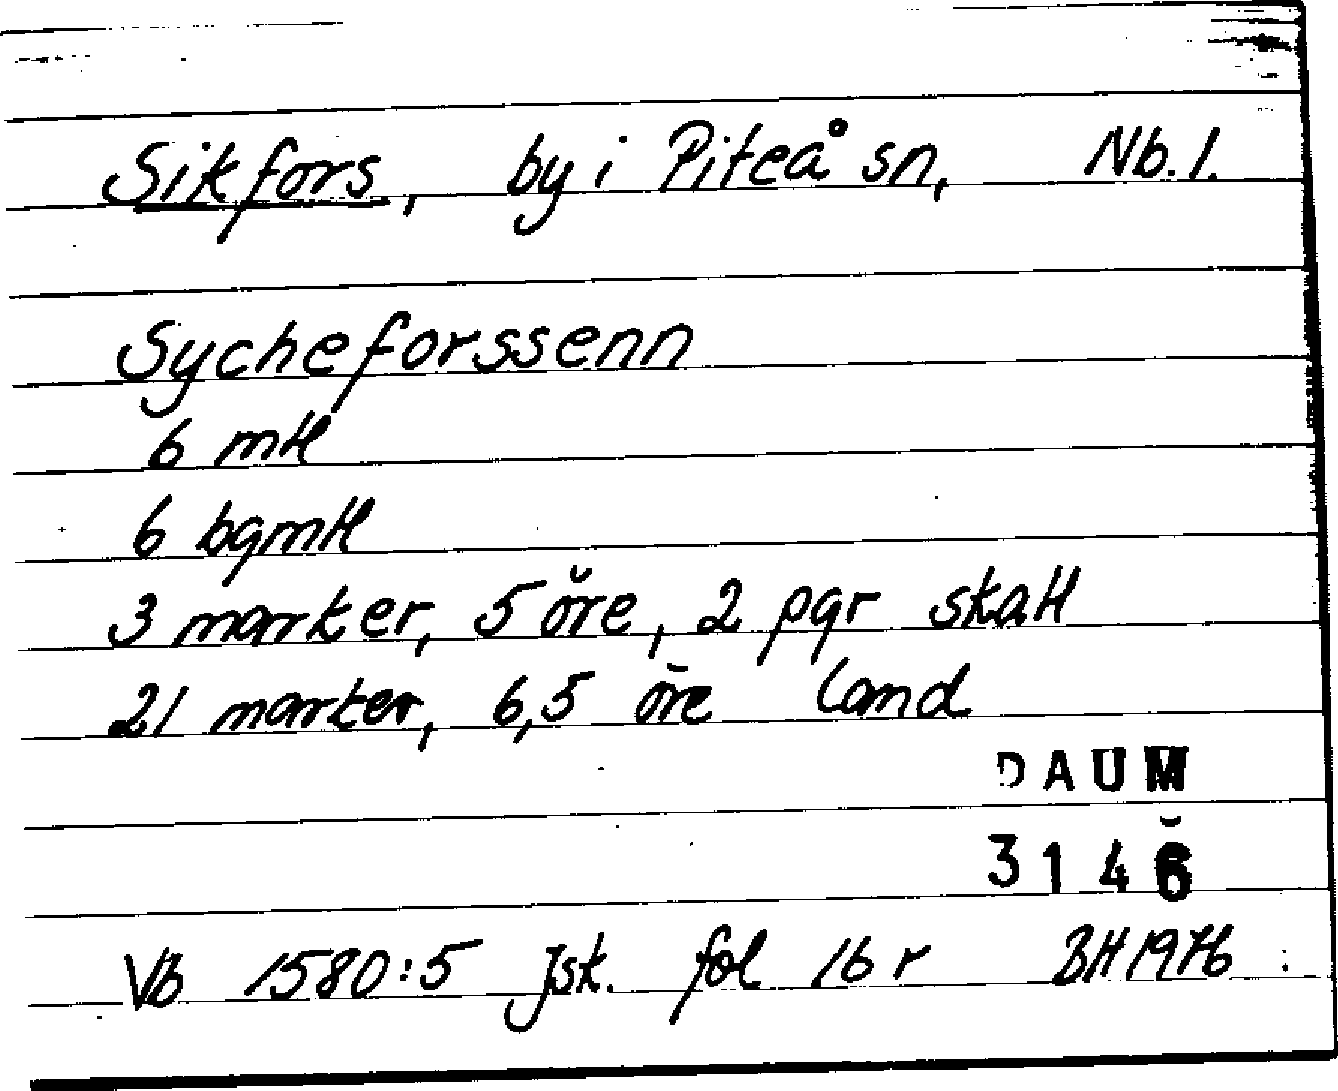 Sikfors, by i Piteå sn, Nb. l.
Sycheforssenn
6 mtl
6 bgmtl
3 marker, 5 öre, 2 pgr skatt
21 marker, 6,5 öre land
DAUM
3146
Vb 1580:5 Jsk. fol 16 r BH 1976